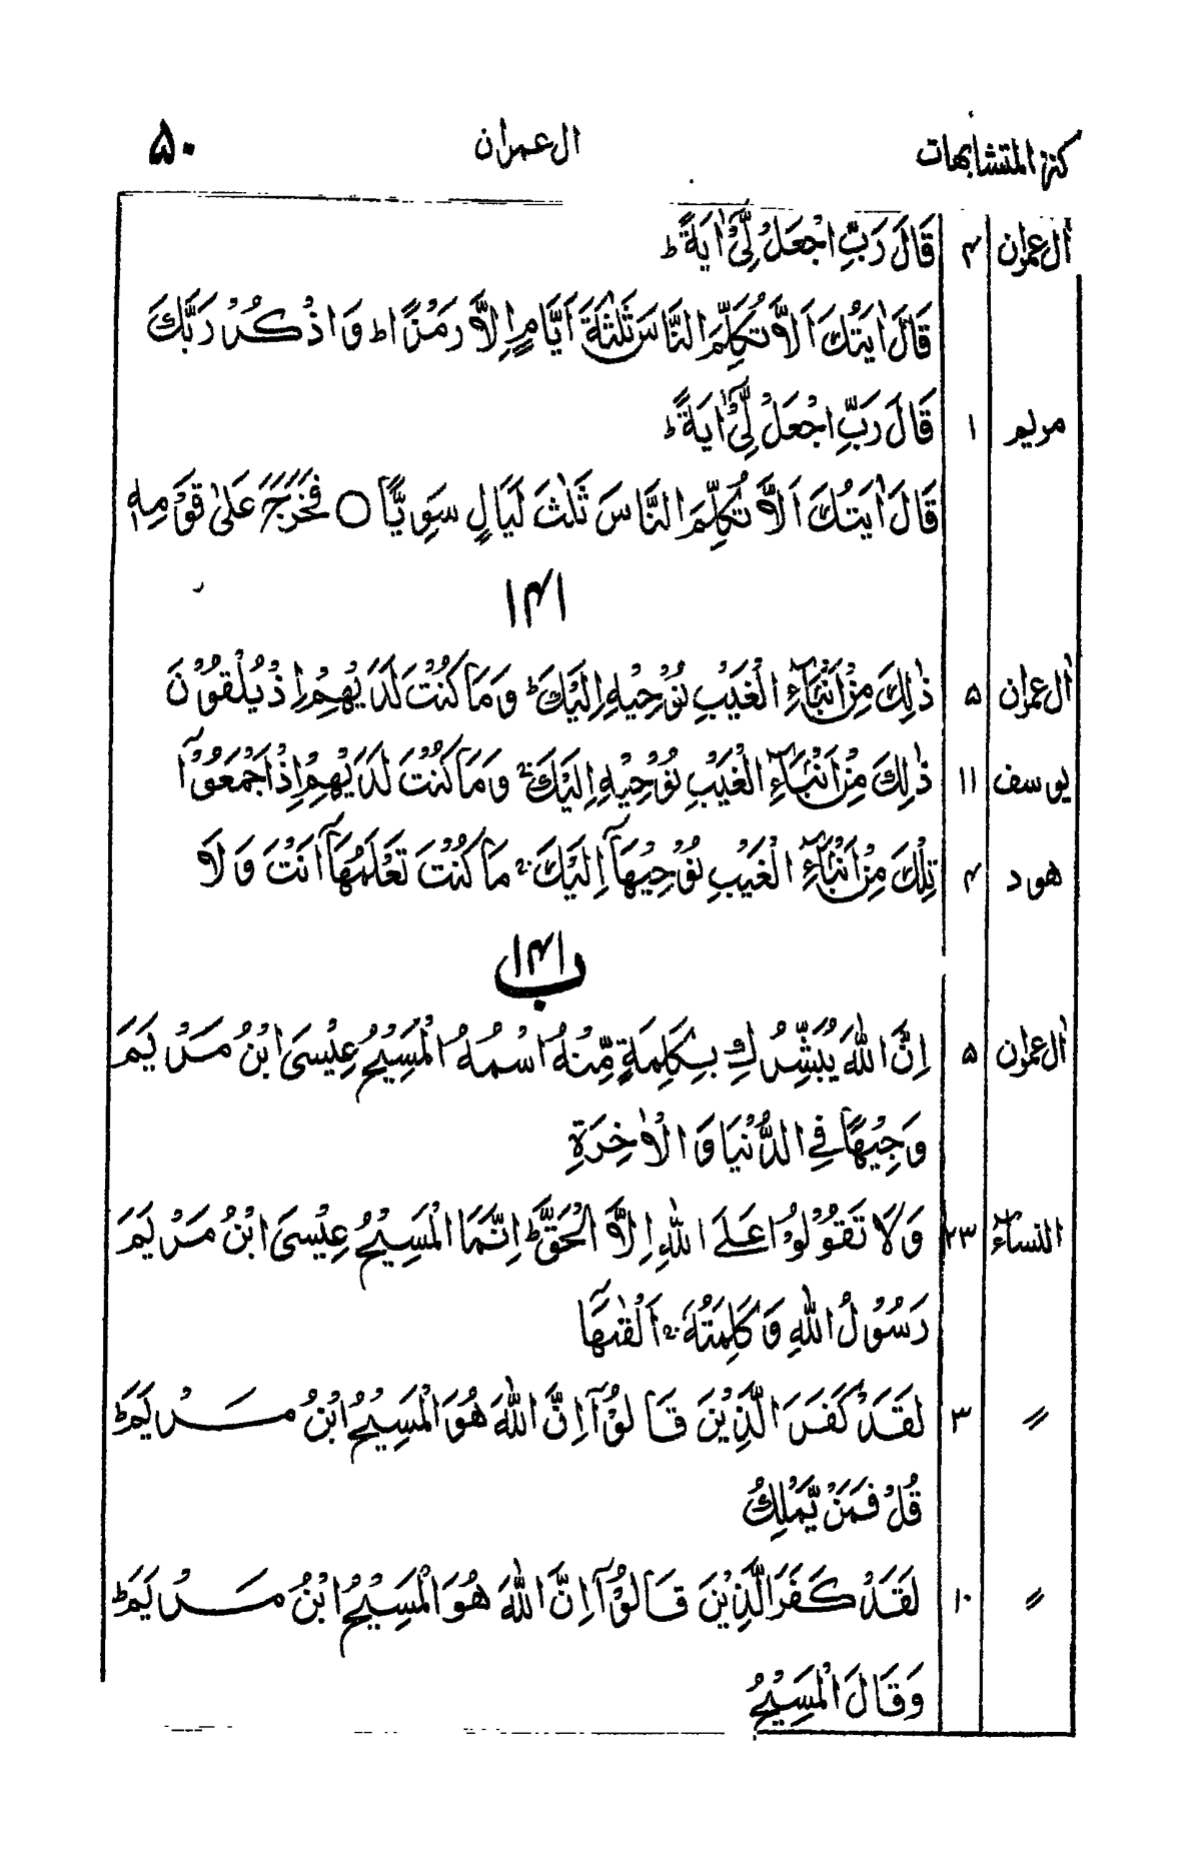 كنز المتشابهات ال عمران ۵۰
اٰل عمرٰن ۴ قَالَ رَبِّ اجْعَلْ لِّیْۤ اٰیَةًؕ
قَالَ اٰیَتُكَ اَلَّا تُكَلِّمَ النَّاسَ ثَلٰثَةَ اَیَّامٍ اِلَّا رَمْزًاؕ وَاذْكُرْ رَبَّكَ
مریم ۱ قَالَ رَبِّ اجْعَلْ لِّیْۤ اٰیَةًؕ
قَالَ اٰیَتُكَ اَلَّا تُكَلِّمَ النَّاسَ ثَلٰثَ لَیَالٍ سَوِیًّا ○ فَخَرَجَ عَلٰی قَوْمِهٖ
۱۴۱
اٰل عمرٰن ۵ ذٰلِكَ مِنْ اَنْۢبَآءِ الْغَیْبِ نُوْحِیْهِ اِلَیْكَؕ وَمَا كُنْتَ لَدَیْهِمْ اِذْ یُلْقُوْنَ
یوسف ۱۱ ذٰلِكَ مِنْ اَنْۢبَآءِ الْغَیْبِ نُوْحِیْهِ اِلَیْكَۚ وَمَا كُنْتَ لَدَیْهِمْ اِذْ اَجْمَعُوْۤا
هود ۴ تِلْكَ مِنْ اَنْۢبَآءِ الْغَیْبِ نُوْحِیْهَاۤ اِلَیْكَۚ مَا كُنْتَ تَعْلَمُهَاۤ اَنْتَ وَلَا
۱۴۱ ب
اٰل عمرٰن ۵ اِنَّ اللّٰهَ یُبَشِّرُكِ بِكَلِمَةٍ مِّنْهُ اسْمُهُ الْمَسِیْحُ عِیْسَی ابْنُ مَرْیَمَ
وَجِیْهًا فِی الدُّنْیَا وَالْاٰخِرَةِ
النسآء ۲۳ وَلَا تَقُوْلُوْا عَلَی اللّٰهِ اِلَّا الْحَقَّؕ اِنَّمَا الْمَسِیْحُ عِیْسَی ابْنُ مَرْیَمَ
رَسُوْلُ اللّٰهِ وَكَلِمَتُهٗۚ اَلْقٰىهَاۤ
〃 ۳ لَقَدْ كَفَرَ الَّذِیْنَ قَالُوْۤا اِنَّ اللّٰهَ هُوَ الْمَسِیْحُ ابْنُ مَرْیَمَؕ
قُلْ فَمَنْ یَّمْلِكُ
〃 ۱۰ لَقَدْ كَفَرَ الَّذِیْنَ قَالُوْۤا اِنَّ اللّٰهَ هُوَ الْمَسِیْحُ ابْنُ مَرْیَمَؕ
وَقَالَ الْمَسِیْحُ